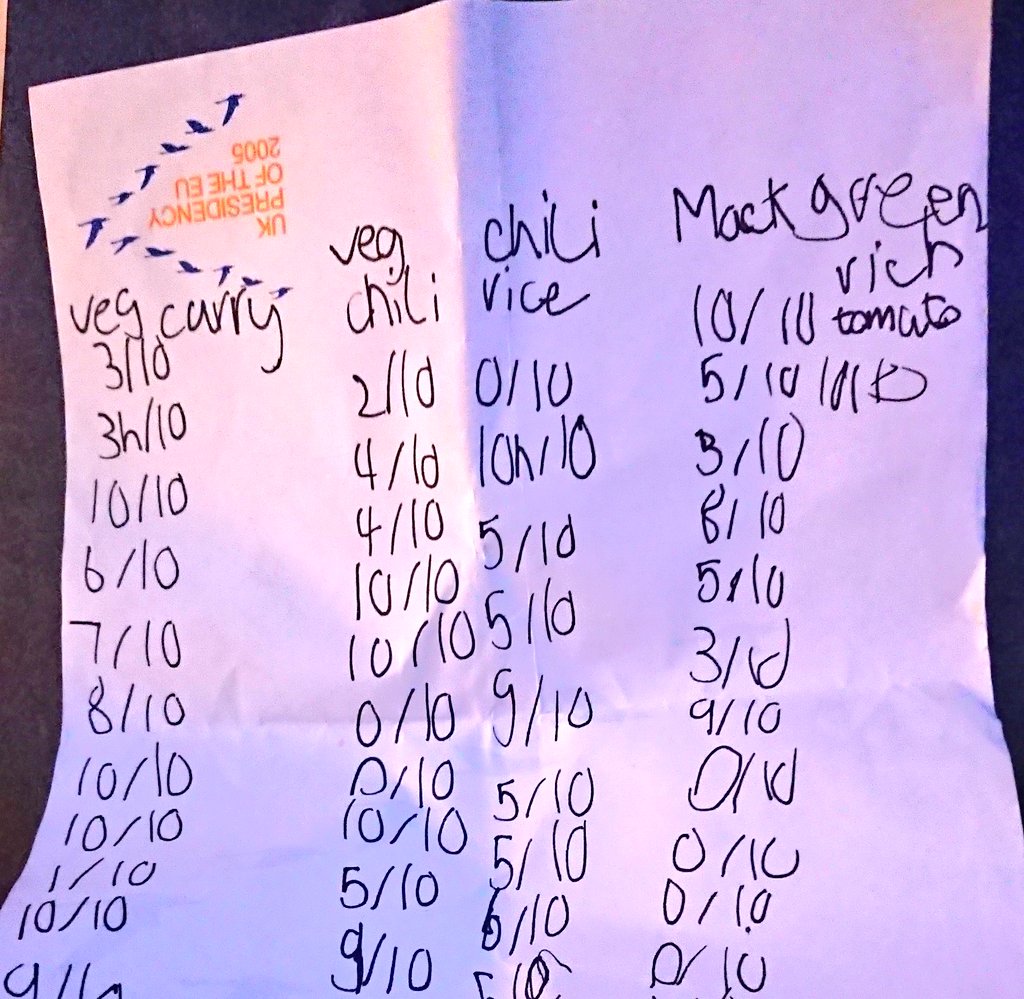 UK
PRESIDENCY
OF THE EU
2005
veg curry
3/10
3h/10
10/10
6/10
7/10
8/10
10/10
10/10
1/10
10/10
9/10
veg
chili
2/10
4/10
4/10
10/10
10/10
0/10
0/10
10/10
5/10
9/10
chili
rice
0/10
10h/10
5/10
5/10
9/10
5/10
5/10
6/10
5/10
Mack green
10/10
5/10
3/10
8/10
5/10
3/10
9/10
0/10
0/10
0/10
0/10
rich
tomato
10/10